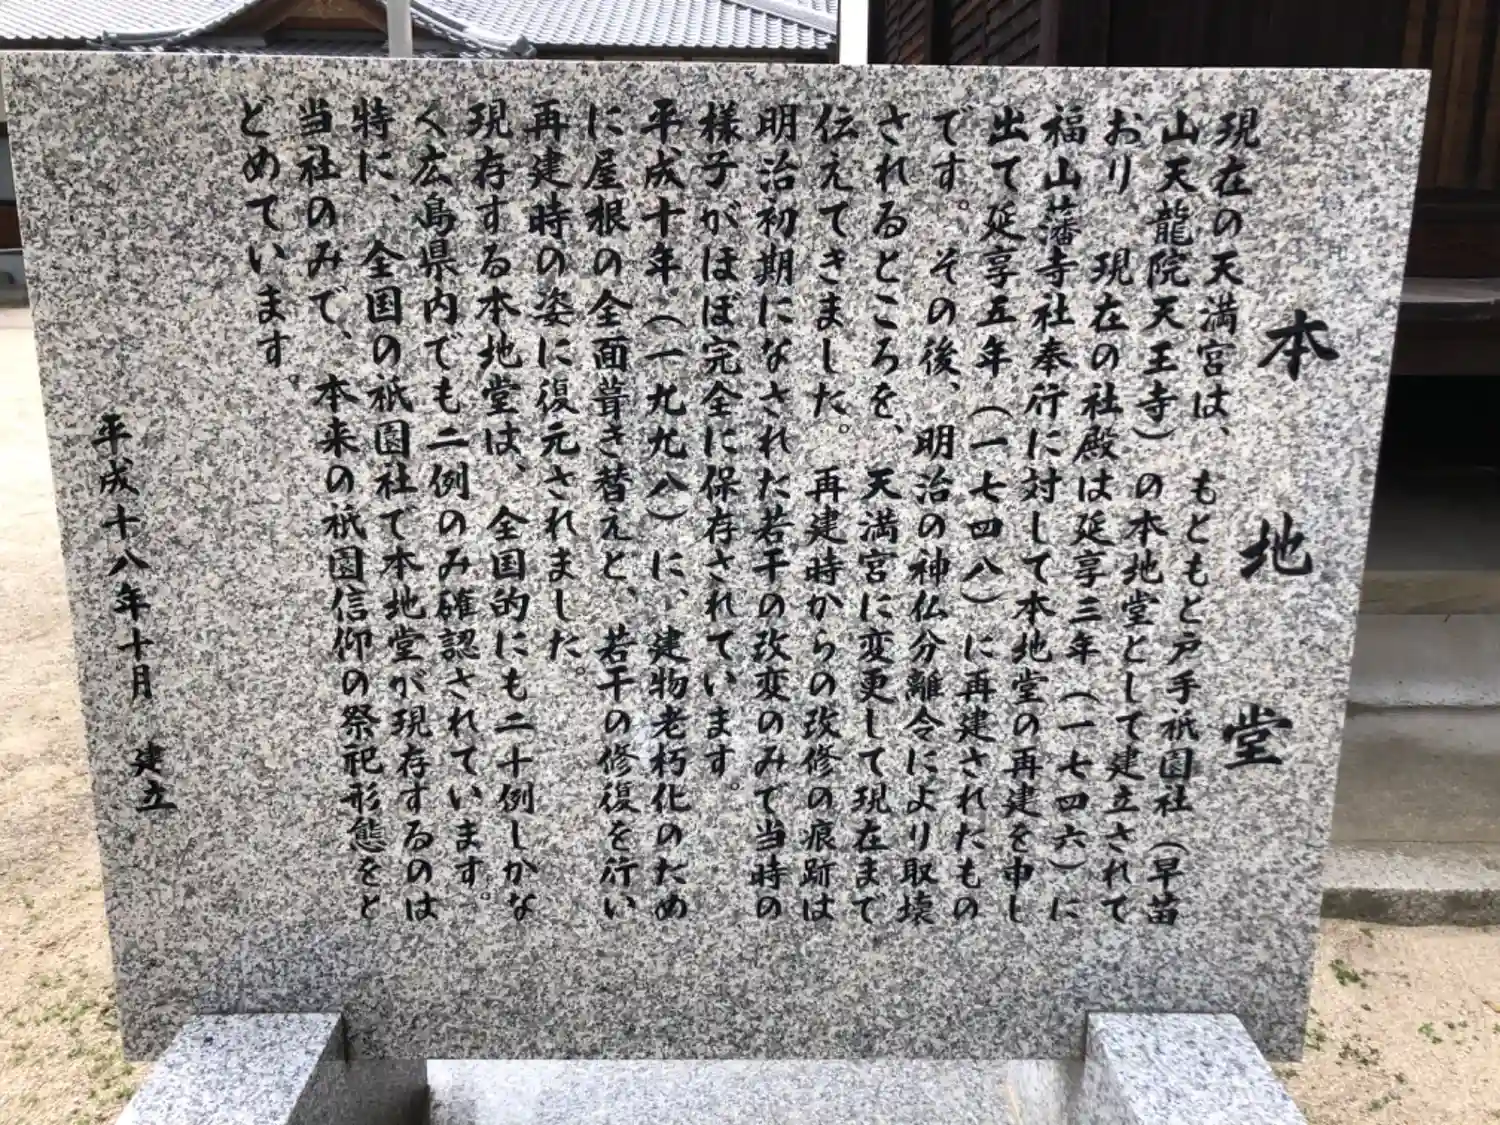 本地堂
現在の天満宮は、もともと戸手祇園社（早苗
山天龍院天王寺）の本地堂として建立されて
おり、現在の社殿は延享三年（一七四六）に
福山藩寺社奉行に対して本地堂の再建を申し
出て延享五年（一七四八）に再建されたもの
です。その後、明治の神仏分離令により取壊
されるところを、天満宮に変更して現在まで
伝えてきました。再建時からの改修の痕跡は
明治初期になされた若干の改変のみで当時の
様子がほぼ完全に保存されています。
平成十年（一九九八）に、建物老朽化のため
に屋根の全面葺き替えと、若干の修復を行い
再建時の姿に復元されました。
現存する本地堂は、全国的にも二十例しかな
く広島県内でも二例のみ確認されています。
特に、全国の祇園社で本地堂が現存するのは
当社のみで、本来の祇園信仰の祭祀形態をと
どめています。
平成十八年十月 建立